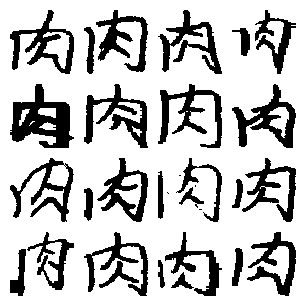 肉肉肉肉
肉肉肉肉
肉肉肉肉
肉肉肉肉